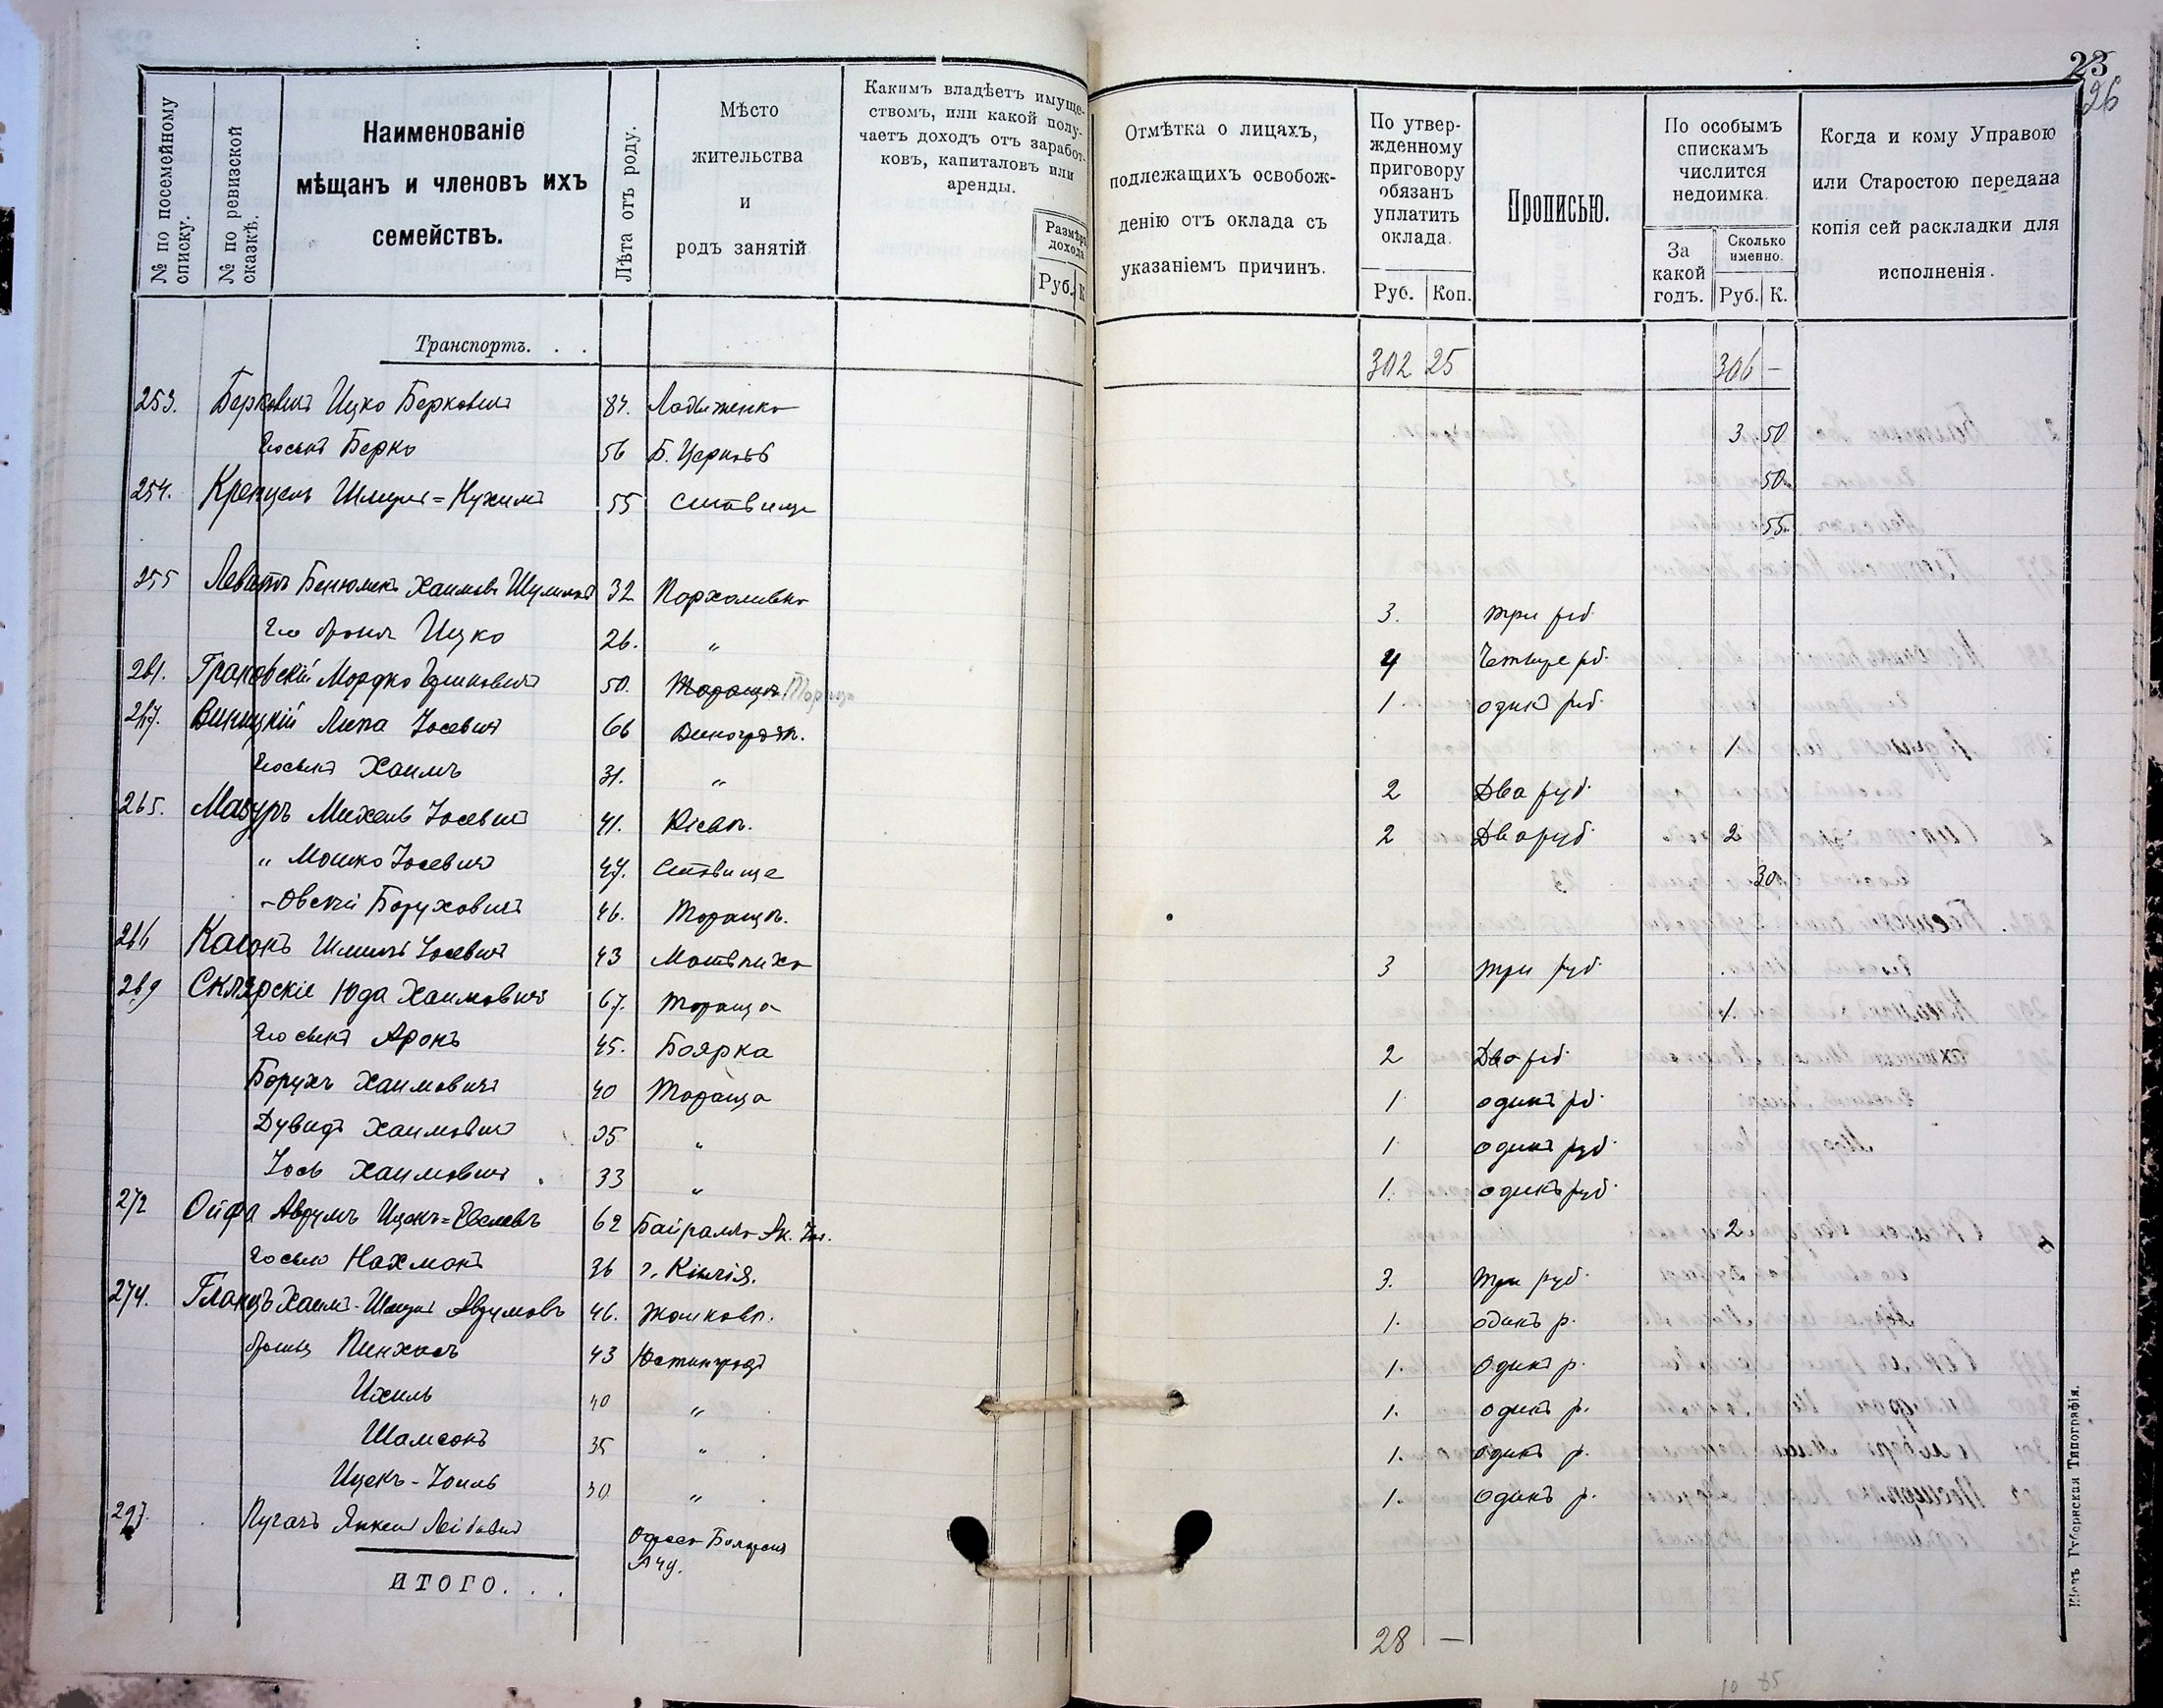 23
26
№ по посемейному списку.
№ по ревизской сказкѣ.
Наименованіе
мѣщанъ и членовъ ихъ
семействъ.
Лѣта отъ роду.
Мѣсто
жительства
и
родъ занятій
Какимъ владѣетъ имуще-
ствомъ, или какой полу-
чаетъ доходъ отъ заработ-
ковъ, капиталовъ или
аренды.
Размѣръ
дохода
Руб. К
Отмѣтка о лицахъ,
подлежащихъ освобож-
денію отъ оклада съ
указаніемъ причинъ.
По утвер-
жденному
приговору
обязанъ
уплатить
оклада.
Руб. Коп.
Прописью.
По особымъ
спискамъ
числится
недоимка.
За
какой
годъ.
Сколько
именно.
Руб. К.
Когда и кому Управою
или Старостою передана
копія сей раскладки для
исполненія.
Транспортъ. . . 302 25 306 —
253. Берковичъ Ицко Берковичъ 84. Ладыженка 3 50
Его сынъ Берко 56 Б. Церковь 50
254. Шмуль=Нухимъ 55 Ставище 55
255 Бенюминъ Хаимовъ 32 3. три руб.
Его братъ Ицко 26. " 4 Четыре рб.
261. Грановскій Мордко 50. Тараща 1. одинъ руб.
267. Виницкій Липа Іосевичъ 66 Виноградъ. 1
Его сынъ Хаимъ 31. " 2 Два руб.
265. Мазуръ Михель Іосевичъ 41. Кіевъ. 2 Два руб. 2
" Мошко Іосевичъ 47. Ставище 30
-Овскій Боруховичъ 46. Таращ.
266 Каганъ Шмиль Іосевичъ 43 3 три руб.
269 Склярскіе Юда Хаимовичъ 67. Тараща 1.
Его сынъ Аронъ 45. Боярка 2 Два руб.
Борухъ Хаимовичъ 40 Тараща 1 одинъ рб.
Дувидъ Хаимовичъ 35 " 1 одинъ руб.
Іось Хаимовичъ 33 " 1. одинъ руб.
272 Ойфа Аврумъ Ицекъ= 62 2
Его сынъ Нахманъ 36 г. Килія. 3. Три руб.
274. Гланцъ Хаимъ-Шмуль Аврумовъ 46. Жашковъ. 1. одинъ р.
братья Пинхасъ 43 Юстинградъ 1. Одинъ р.
Ихиль 40 " 1. одинъ р.
Шамсонъ 35 " 1. одинъ р.
Ицекъ-Іоиль 30 " 1. одинъ р.
297. Пугачъ Янкель Лейбовичъ Одесса
ИТОГО. . . 28 —
10 85
Кіевъ Губернская Типографія.